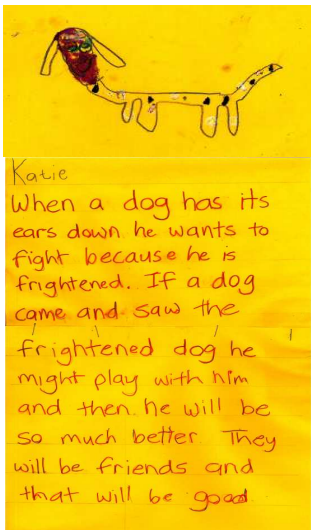 Katie
When a dog has its
ears down he wants to
fight because he is
frightened. If a dog
came and saw the
frightened dog he
might play with him
and then he will be
so much better. They
will be friends and
that will be good